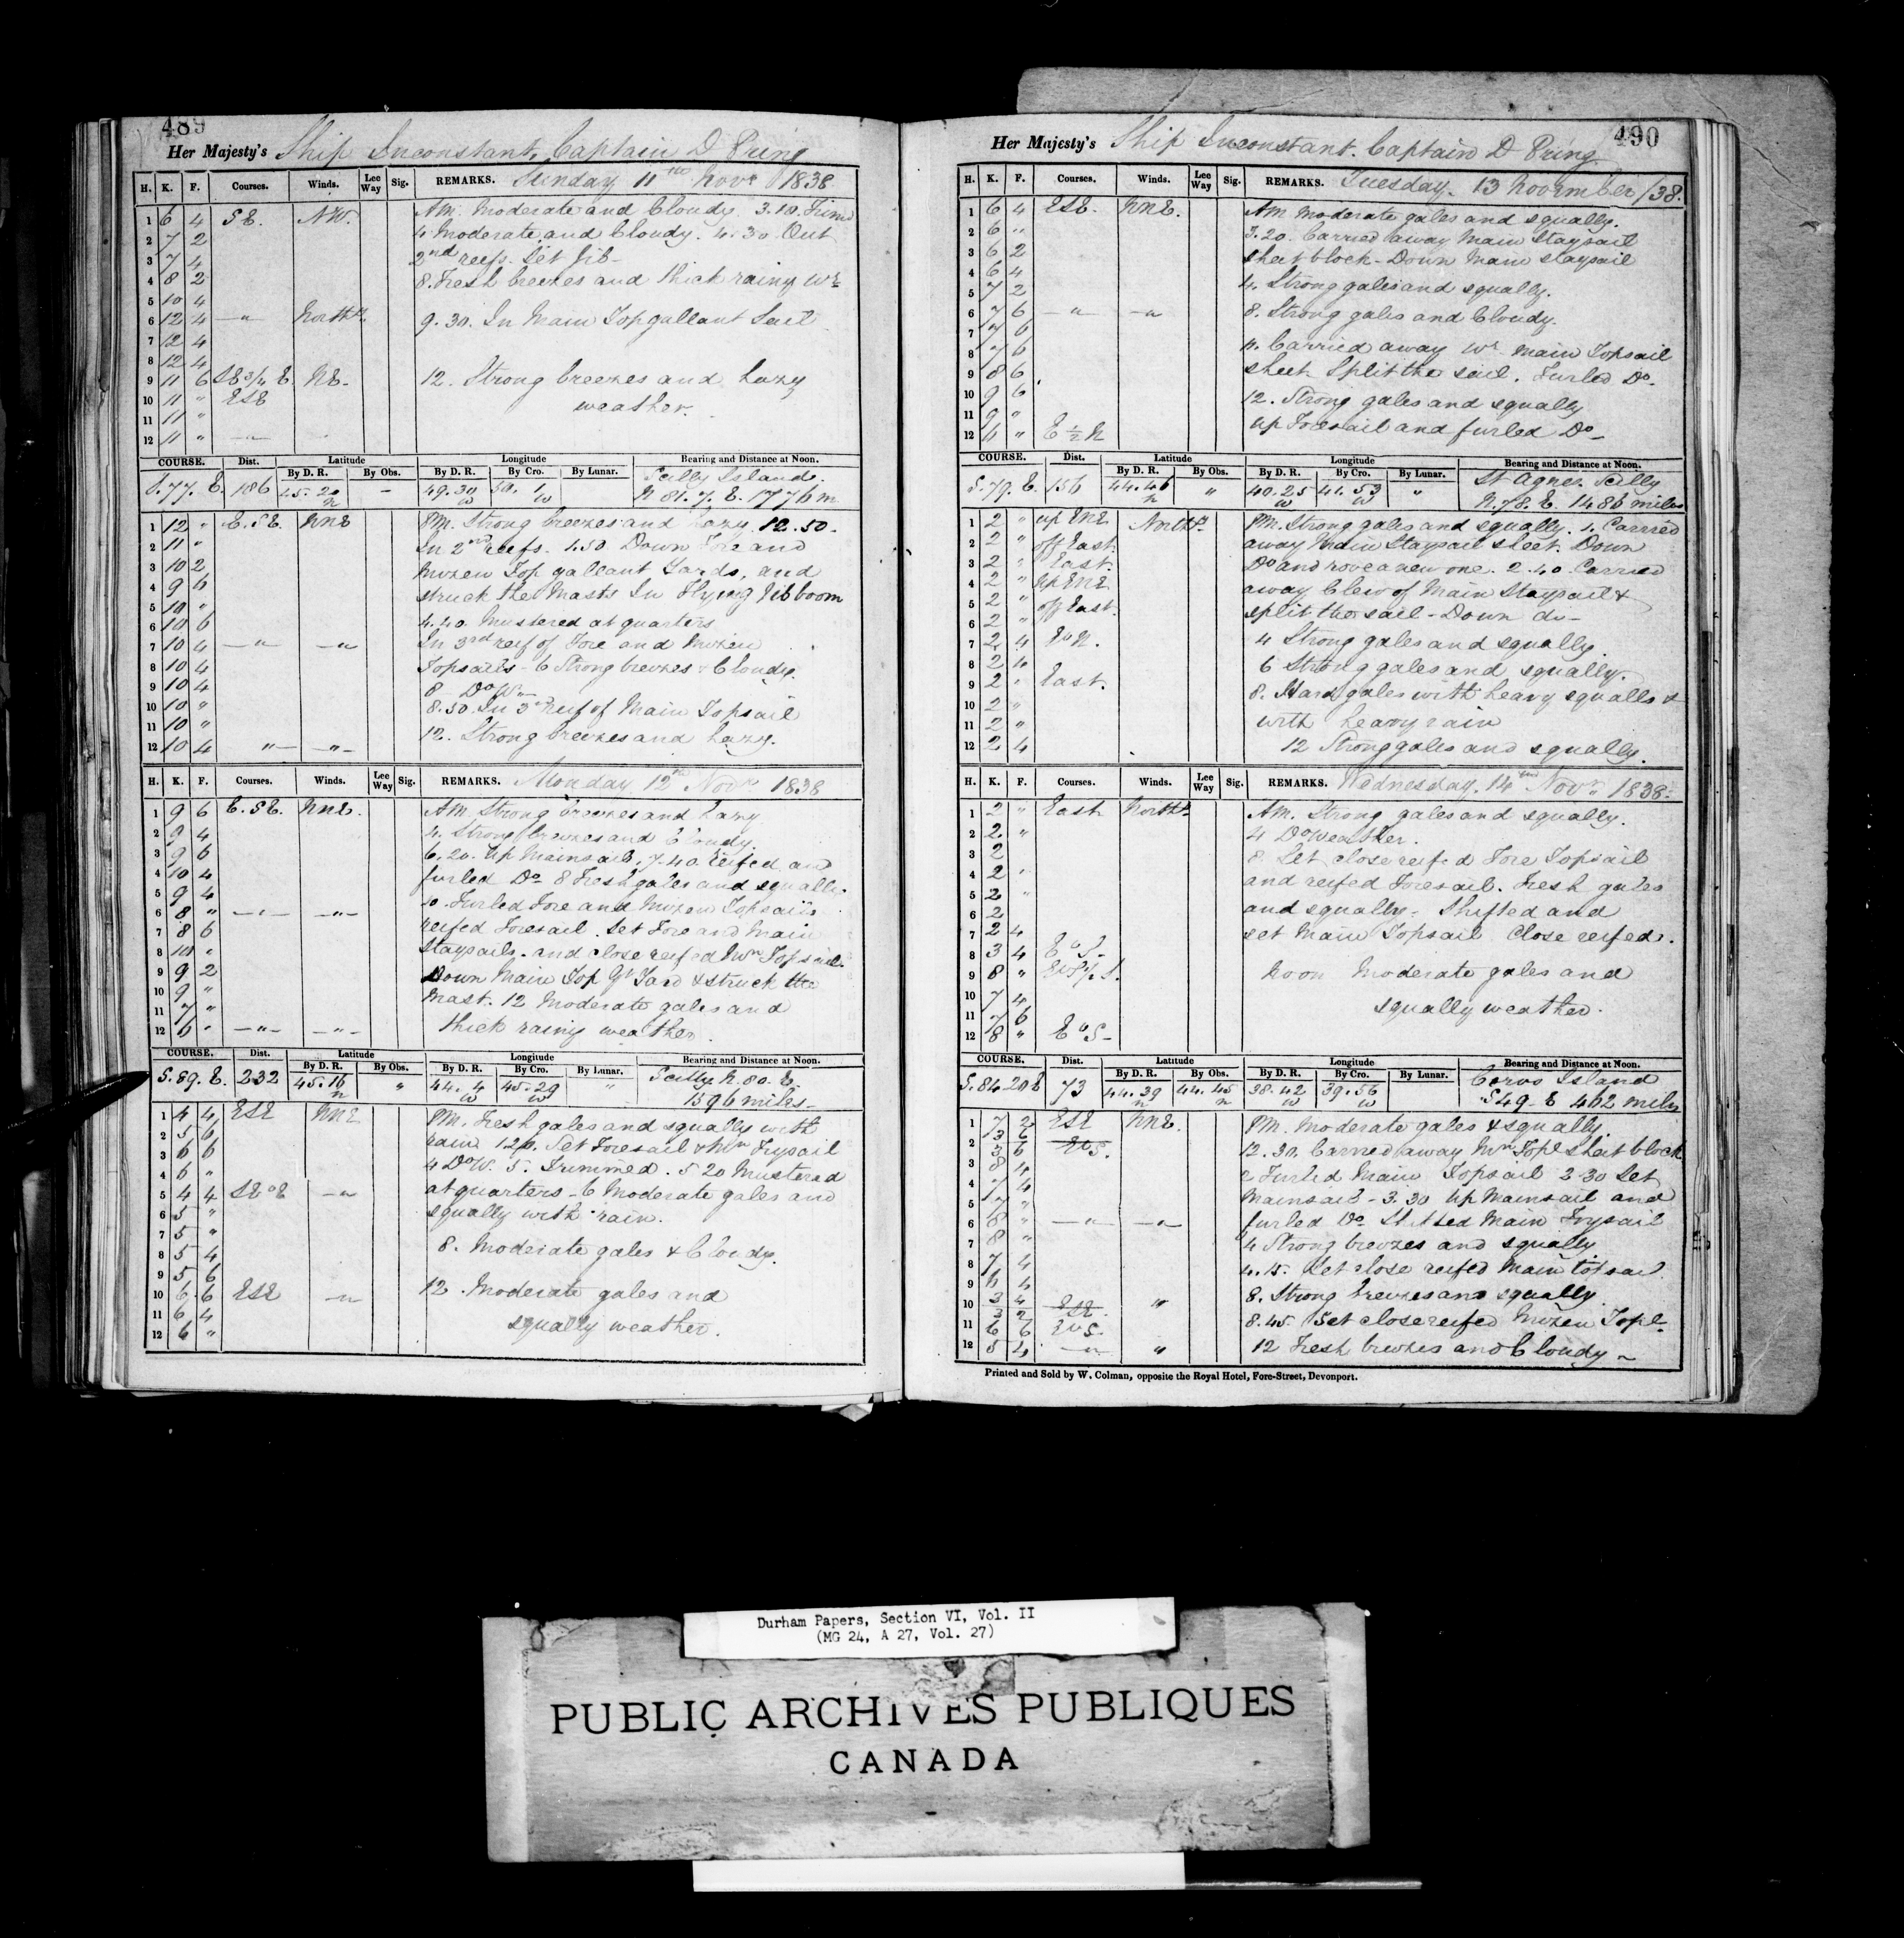 489
Her Majesty's Ship Inconstant, Captain D Pring
H. K. F. Courses. Winds. Lee Way Sig. REMARKS. Sunday 11th Novr 1838
1 6 4 SE. NW. AM. Moderate and Cloudy. 3.10.
2 7 2 4 Moderate and Cloudy. 4.30 Out
3 7 4 2nd reefs. Set Jib-
4 8 2 8. Fresh breezes and thick rainy Wr
5 10 4
6 12 4 —"— North 9.30. In Main Topgallant Sail
7 12 4
8 12 4
9 11 6 SE 3/4 E. NE. 12. Strong breezes and hazy
10 11 " ESE weather.
11 11 "
12 11 " —"—
COURSE. Dist. Latitude Longitude Bearing and Distance at Noon.
By D. R. By Obs. By D. R. By Cro. By Lunar. Scilly Island.
S.77.E. 186 45.20 n - 49.30 w 50.1 w N 81.7.E. 1776 m
1 12 " E.SE. NNE PM. Strong breezes and hazy. 12.50.
2 11 " In 2nd reefs. 1.50 Down Fore and
3 10 2 Mizen Top gallant Yards, and
4 9 6 struck the Masts In Flying Jib boom
5 10 " 4.40. Mustered at quarters
6 10 6
7 10 4 —"— —"— In 3rd reef of Fore and Mizen
8 10 4 Topsails - 6 Strong breezes & Cloudy.
9 10 4 8 Do Wr
10 10 " 8.50. In 3rd reef of Main Topsail
11 10 " 12. Strong breezes and hazy.
12 10 4 —"— —"—
H. K. F. Courses. Winds. Lee Way Sig. REMARKS. Monday 12th Novr 1838
1 9 6 E.SE. NNE. AM Strong breezes and hazy
2 9 4 4. Strong breezes and Cloudy.
3 9 6 6.20. Up Mainsail, 7.40. reefed and
4 10 4 furled Do 8 Fresh gales and squally.
5 9 4 10. Furled Fore and Mizen Topsails
6 8 " —"— —"— reefed Foresail. Set Fore and Main
7 8 6 Staysails. and close reefed Mn Topsail.
8 10 "
9 9 2 Down Main Top Gt Yard & struck the
10 9 " Mast. 12 Moderate gales and
11 7 " thick rainy weather.
12 6 " —"— —"—
COURSE. Dist. Latitude Longitude Bearing and Distance at Noon.
By D. R. By Obs. By D. R. By Cro. By Lunar. Scilly N.80.E.
S.89.E. 232 45.16 n " 44.4 w 45.29 w " 1596 miles-
1 4 4 ESE NNE PM. Fresh gales and squally with
2 5 6 rain 1.20. Set Foresail & Mn Trysail
3 6 6 4 Do W. 5. Trimmed. 5 20 Mustered
4 6 "
5 4 4 —"— at quarters - 6 Moderate gales and
6 5 " squally with rain.
7 5 "
8 5 4 8. Moderate gales & Cloudy.
9 5 6
10 6 6 ESE —"— 12. Moderate gales and
11 6 4 squally weather.
12 6 "
490
Her Majesty's Ship Inconstant. Captain D Pring.
H. K. F. Courses. Winds. Lee Way Sig. REMARKS. Tuesday. 13 November /38.
1 6 4 ESE. NNE. AM Moderate gales and squally.
2 6 " 3.20. Carried away Main Staysail
3 6 2 sheet block - Down Main staysail
4 6 4
5 7 2 4. Strong gales and squally.
6 7 6 —"— —"— 8. Strong gales and Cloudy.
7 7 6
8 7 6 11. Carried away Wr Main Topsail
9 8 6 sheet Split the sail. Furled Do.
10 9 6 12. Strong gales and squally
11 9 " up Foresail and furled Do-
12 " E 1/2 N
COURSE. Dist. Latitude Longitude Bearing and Distance at Noon.
By D. R. By Obs. By D. R. By Cro. By Lunar. St Agnes. Scilly
S.79.E. 156 44.46 n " 40.25 w 41.53 w " N.78.E. 1486 miles
1 2 " up ENE North PM. Strong gales and squally. 1. Carried
2 2 " off East. away Main Staysail sheet. Down
3 2 " East. Do and rove a new one. 2.40. Carried
4 2 " up ENE away Clew of Main Staysail &
5 2 " off East. split the sail - Down do-
6 2 "
7 2 4 EbN. 4 Strong gales and squally.
8 2 4 6 Strong gales and squally.
9 2 " East. 8. Hard gales with heavy squalls &
10 2 "
11 2 " with heavy rain
12 2 4 12 Strong gales and squally.
H. K. F. Courses. Winds. Lee Way Sig. REMARKS. Wednesday. 14th Novr 1838.
1 2 " East North AM. Strong gales and squally.
2 2 " 4 Do Weather.
3 2 8. Set close reefed Fore Topsail
4 2 " and reefed Foresail. Fresh gales
5 2 "
6 2 and squally. Shifted and
7 2 4 set Main Topsail Close reefed.
8 3 4 EbS-
9 8 " Noon Moderate gales and
10 7 4
11 7 6 squally weather.
12 8 " EbS-
COURSE. Dist. Latitude Longitude Bearing and Distance at Noon.
By D. R. By Obs. By D. R. By Cro. By Lunar. Corvo Island
S.84.20E 73 44.39 n 44.45 n 38.42 w 39.56 w S49.E 462 miles
1 7 2 ESE NNE. PM. Moderate gales & squally.
2 3 6 EbS. 12.30. Carried away Mn Topl Sheet block
3 6
3 8 4 2 Furled Main Topsail 2.30 Set
4 7 4 Mainsail - 3.30 Up Mainsail and
5 7 "
6 8 " —"— —"— furled Do. Shifted Main Trysail
7 8 " 4 Strong breezes and squally
8 7 4 4.15. Set close reefed Main topsail.
9 6 4
10 3 4 ESE " 8. Strong breezes and squally
3 2
11 6 6 EbS. 8.45. Set close reefed Mizen Topl-
12 5 4 —"— " 12 Fresh breezes and Cloudy ~
Printed and Sold by W. Colman, opposite the Royal Hotel, Fore-Street, Devonport.
Durham Papers, Section VI, Vol. II
(MG 24, A 27, Vol. 27)
PUBLIC ARCHIVES PUBLIQUES
CANADA